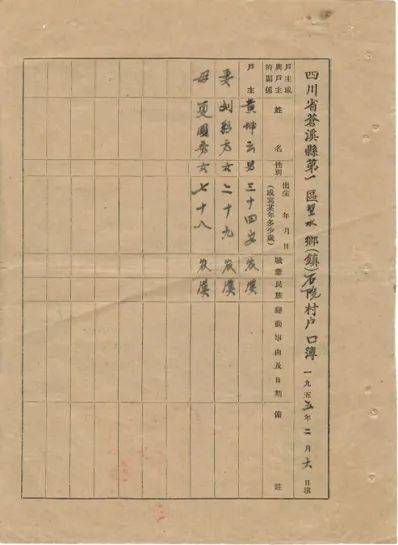 四川省蒼溪縣第一區 水鄉(鎮)石院村戶口簿 一九五五年二月六日填
戶主或與戶主的關係 姓名 性別 出生年月日(或寫某年多少歲) 職業 民族 變動事由及日期 備註
戶主 黃坤云 男 三十四歲 农 漢
妻 刘 秀 女 二十九 农 漢
母 國秀 女 七十八 农 漢